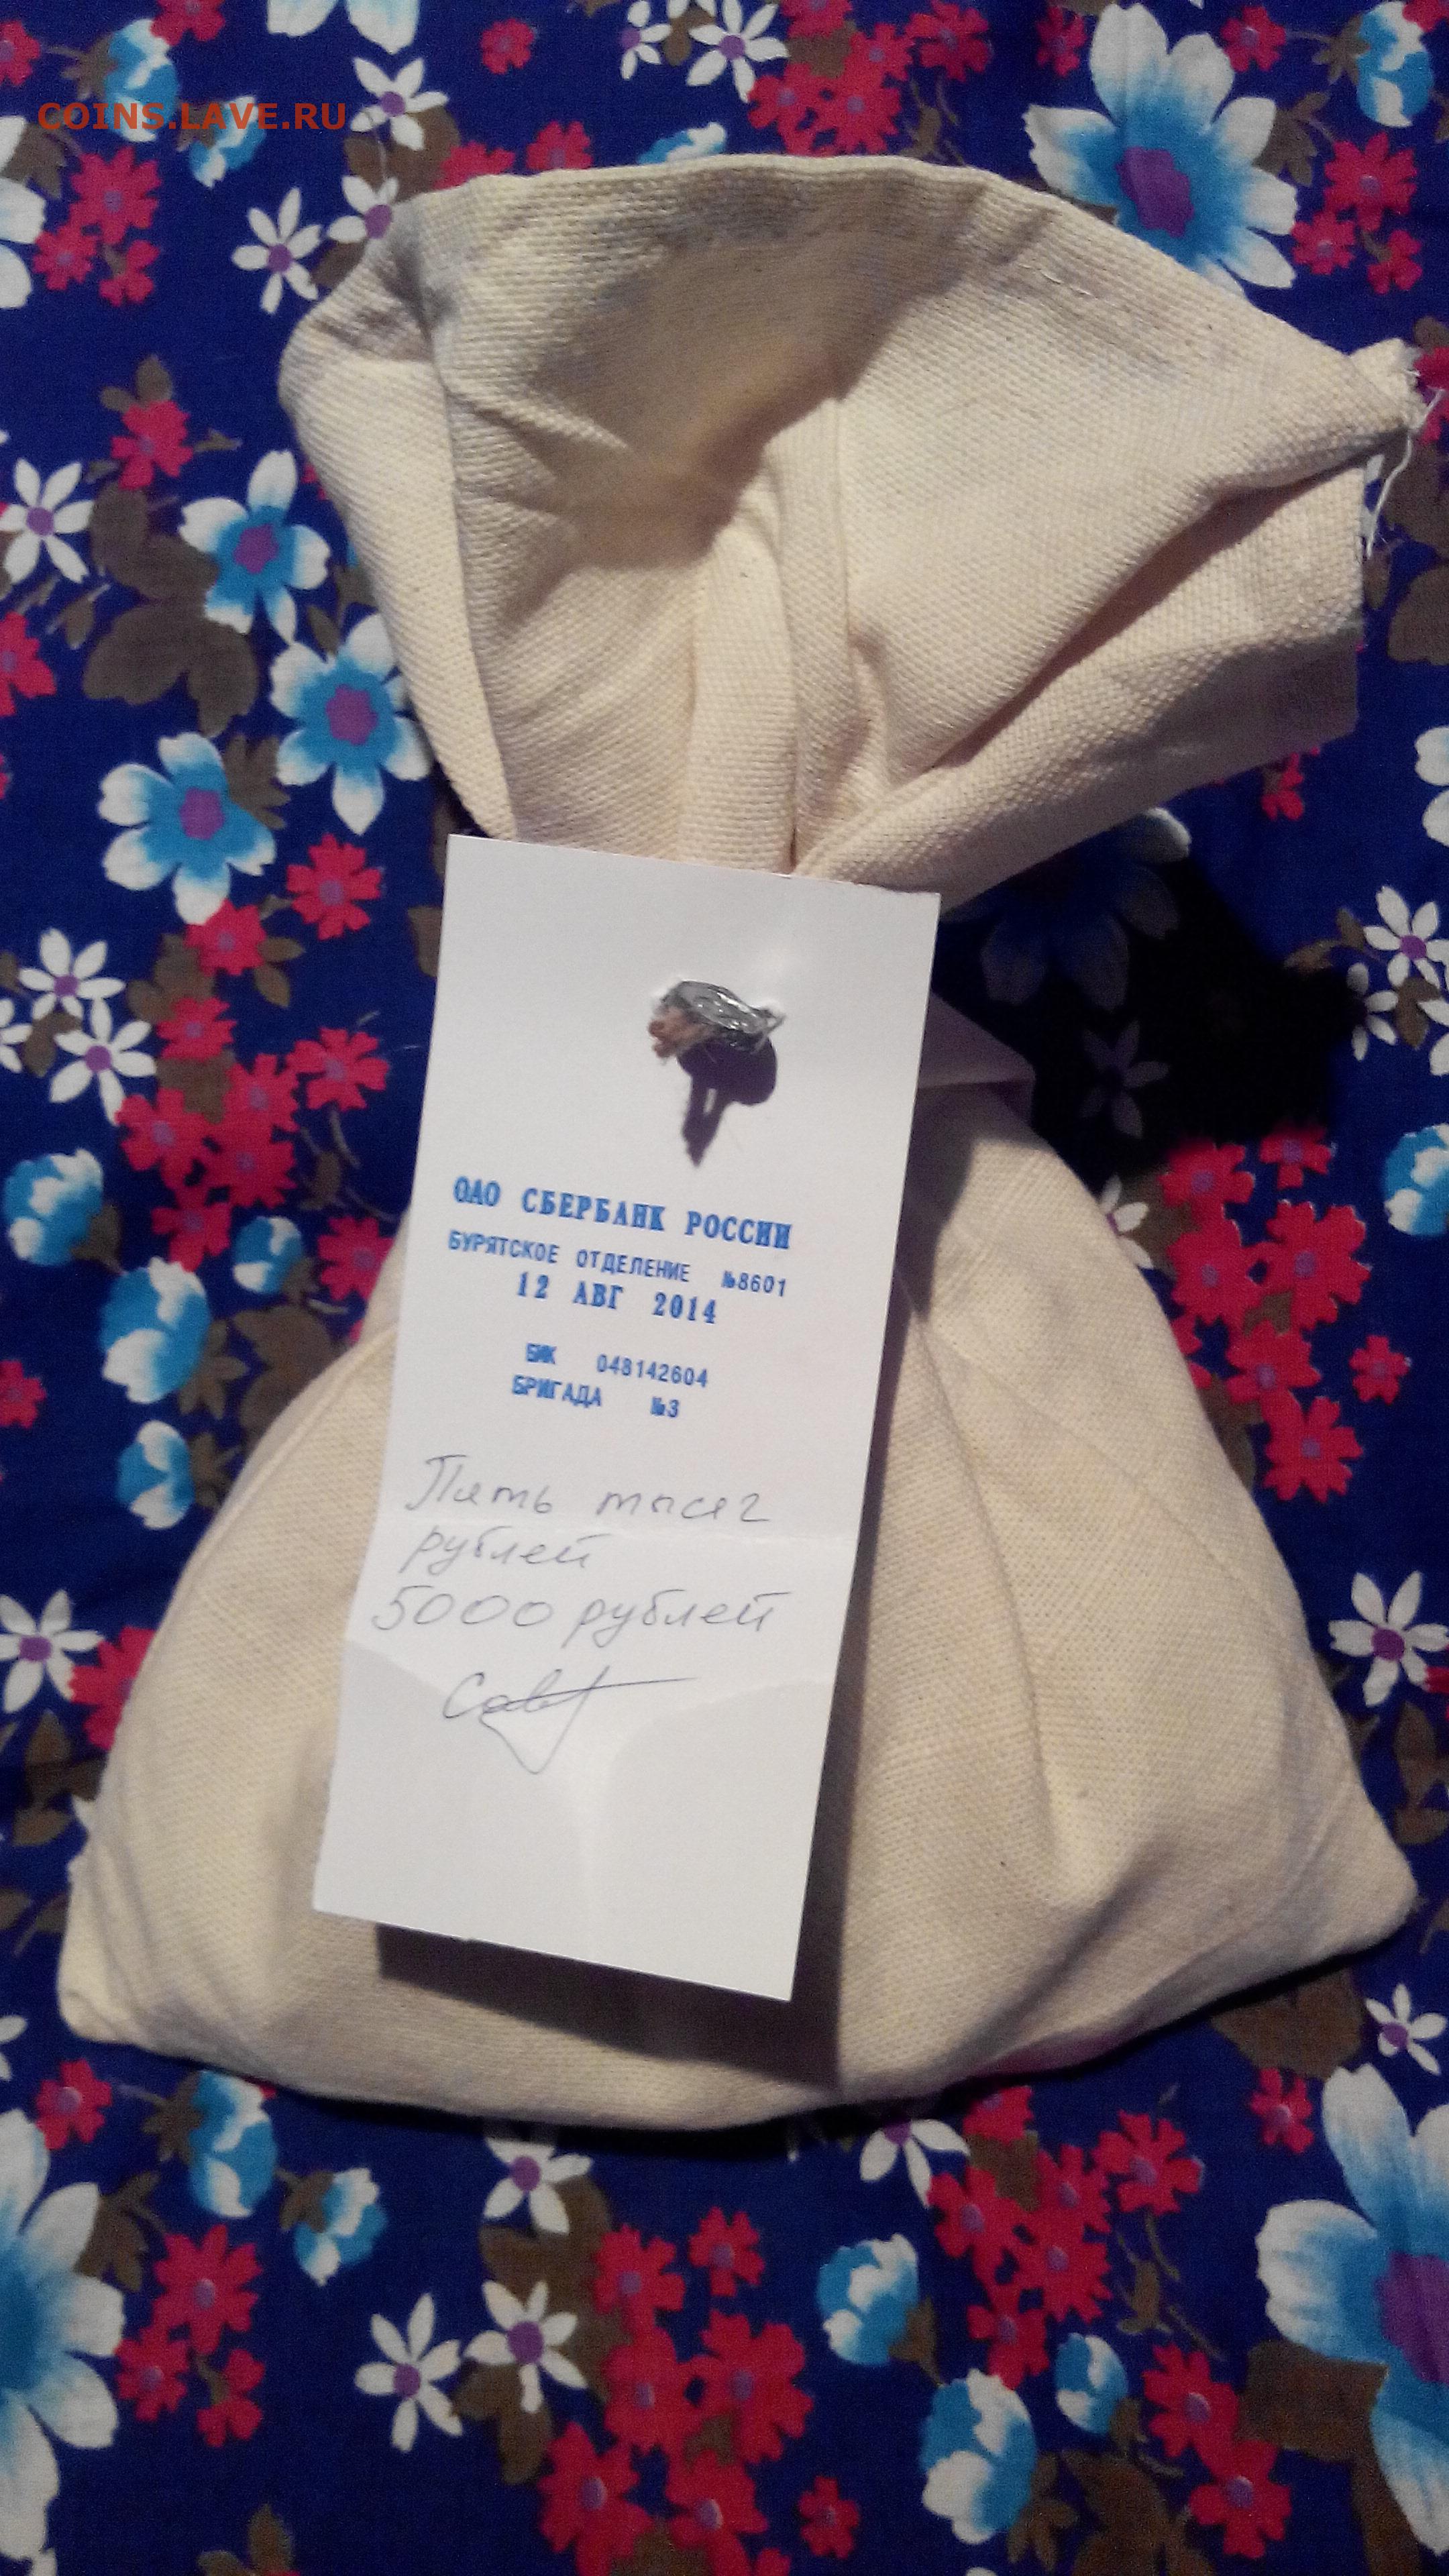 COINS.LAVE.RU
ОАО СБЕРБАНК РОССИИ
БУРЯТСКОЕ ОТДЕЛЕНИЕ №8601
12 АВГ 2014
БИК 048142604
БРИГАДА №3
Пять тысяч
рублей
5000 рублей